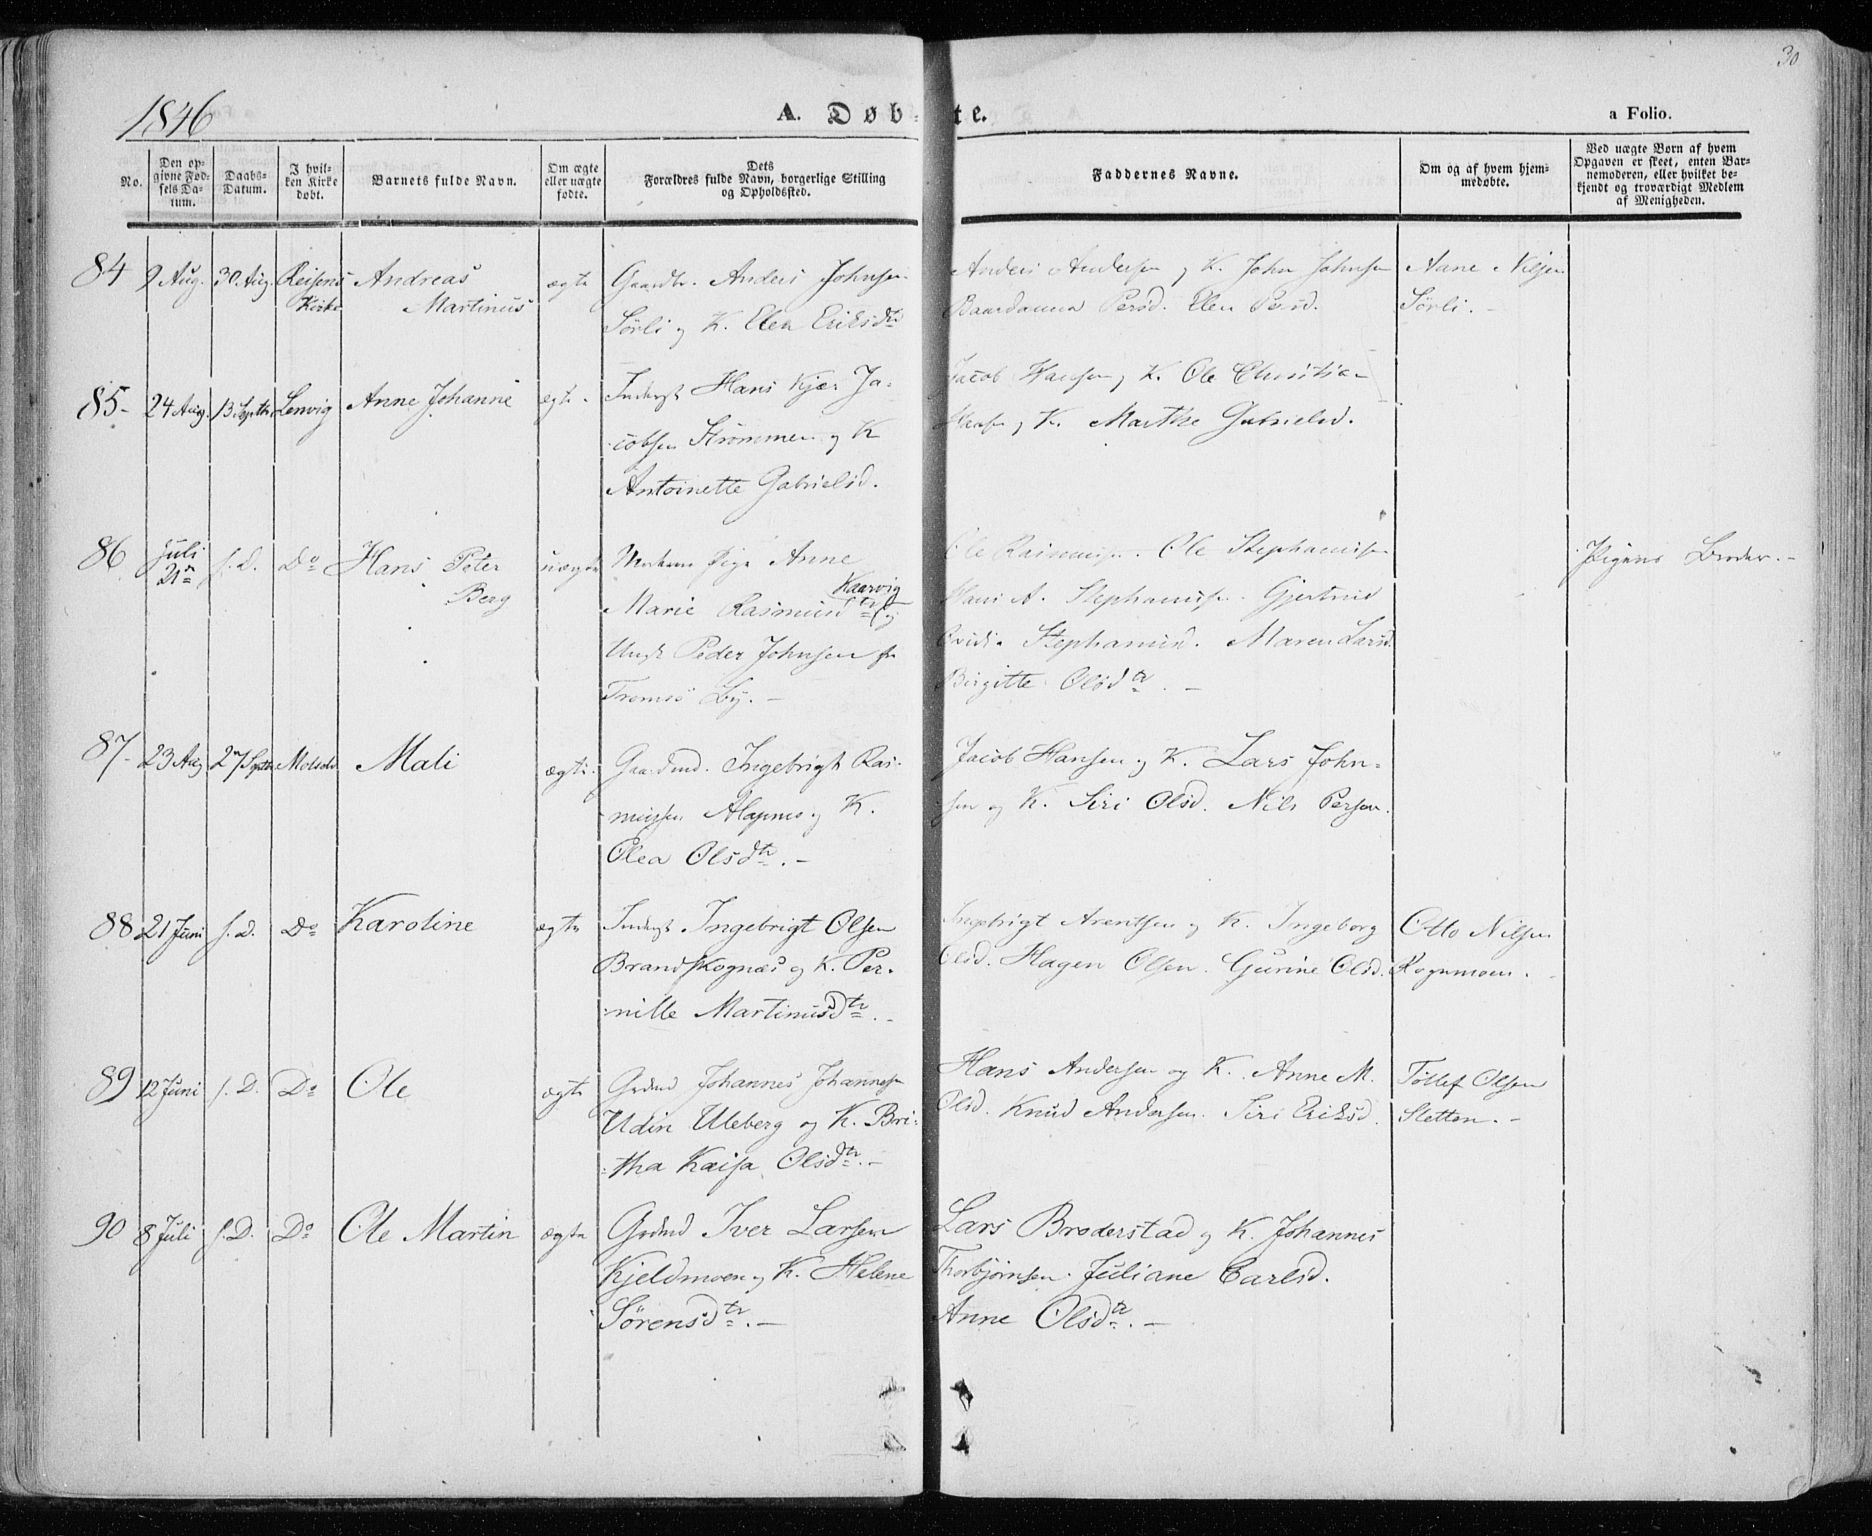 30
1846
A. Døbte.
a Folio.
No.
Den opgivne Fødsels Datum.
Daabs-Datum.
I hvilken Kirke døbt.
Barnets fulde Navn.
Om ægte eller uægte fødte.
Dets Forældres fulde Navn, borgerlige Stilling og Opholdssted.
Faddernes Navne.
Om og af hvem hjemmedøbte.
Ved uægte Børn af hvem Opgaven er skeet, enten Barnemoderen, eller hvilket bekjendt og troværdigt Medlem af Menigheden.
84 9 Aug. 30 Aug. Reisens Andreas ægte Gaardbr. Anders Johnsen Anders Andersen og K. John Johnsen Nilsen
Kirke Martinus Sörli og K. Elen Eriksdtr Persd. Elen Persd. Sörli. -
85- 24 Aug. 13 Septbr Lenvig Anne Johanne ægte Inderst Hans Kjær Ja- Jacob Hansen og K. Ole Christia-
cobsen Strømmen og K K. Marthe Gabrielsd.
Antoinette Gabrielsd.
86 Juli 21de s. D. Do Hans Peter uægte Pige Anne Ole Rasmussen. Ole Stephanusen Pigens Broder. -
Berg Marie Rasmusdtr Kaarvig og Hans A. Stephanusen. Gjertrud
Ungk Peder Johnsen fra Stephanusd. Maren Larsd.
Tromsö By. - Birgitte Olsdtr. -
87- 23 Aug 27 Septbr Maalselv Mali ægte. Gaardmd. Ingebrigt Ras- Jacob Hansen og K. Lars John-
mussen Alapmo og K. sen og K. Siri Olsd. Nils Persen.
Olea Olsdtr. -
88 21 Juni s. D. Do Karoline ægte Inderst Ingebrigt Olsen Ingebrigt Arentsen og K. Ingeborg Otto Nilsen
Brandskognæs og K. Per- Olsd. Hagen Olsen. Gurine Olsd. Rognmoen. -
nille Martinusdtr. -
89 12 Juni s. D. Do Ole ægte Grdmd Johannes Johannesen Hans Andersen og K. Anne M. Tollef Olsen
Udin Uleberg og K. Bri- Olsd. Knud Andersen. Siri Eriksd. Sletten. -
tha Kaisa Olsdtr. -
90 8 Juli s. D. Do Ole Martin ægte Grdmd Iver Larsen Lars Broderstad og K. Johannes
Kjeldmoen og K. Helene Thorbjörnsen. Juliane Carlsd.
Sörensdtr. - Anne Olsdtr. -